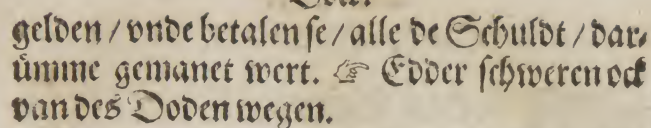 gelden / vnde betalen se / alle de Schuldt / dar⸗
ümme gemanet wert. ☞ Edder schweren ock
van des Doden wegen.